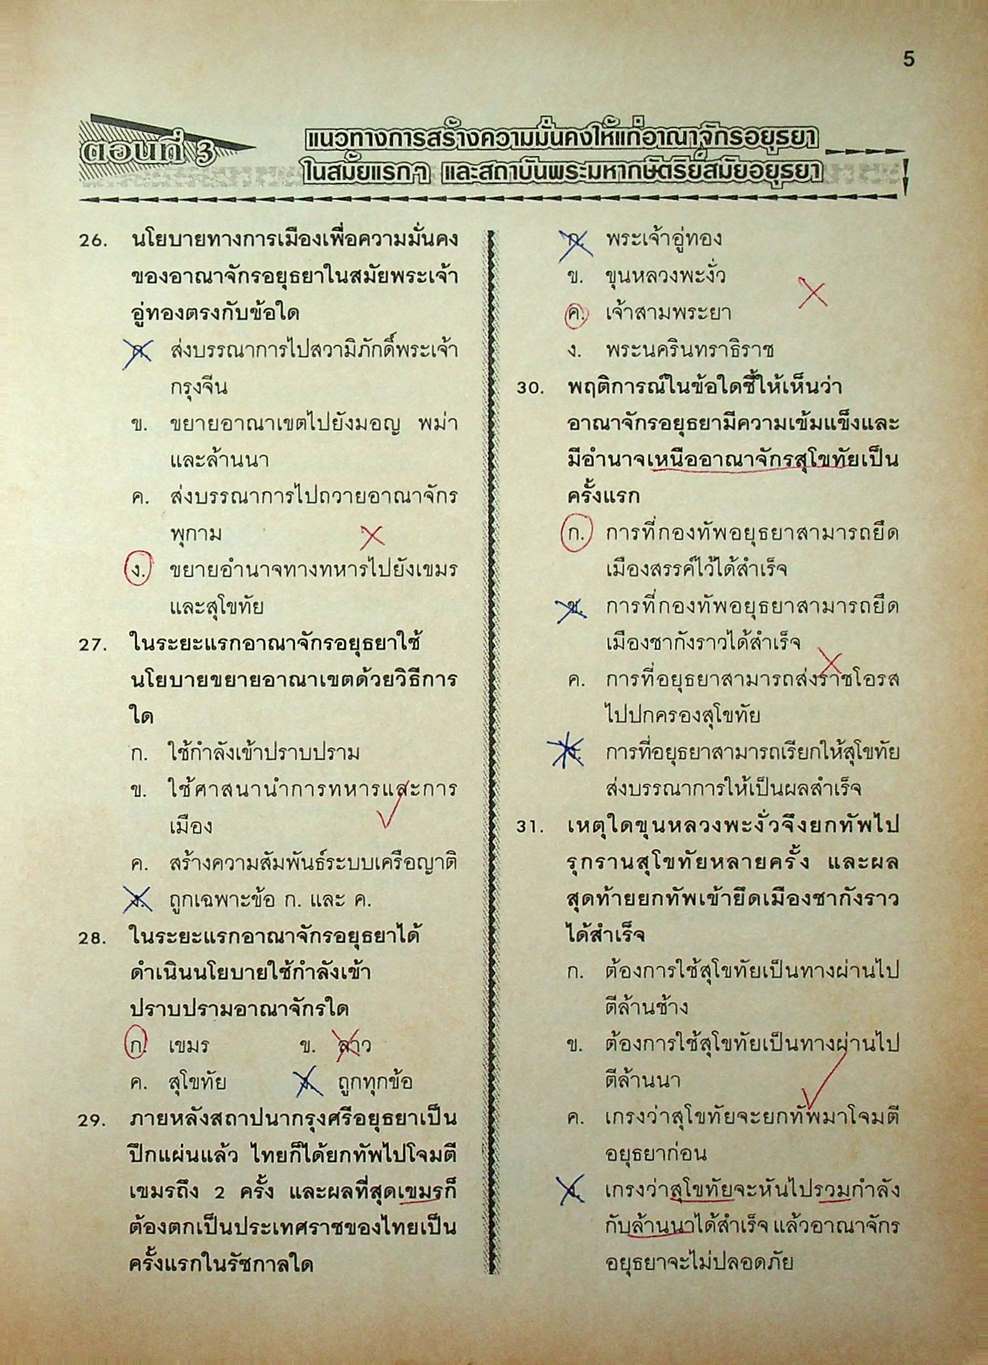 5
ตอนที่ 3
แนวทางการสร้างความมั่นคงให้แก่อาณาจักรอยุธยา
ในสมัยแรกๆ และสถาบันพระมหากษัตริย์สมัยอยุธยา
26. นโยบายทางการเมืองเพื่อความมั่นคง
ของอาณาจักรอยุธยาในสมัยพระเจ้า
อู่ทองตรงกับข้อใด
ก. ส่งบรรณาการไปสวามิภักดิ์พระเจ้า
กรุงจีน
ข. ขยายอาณาเขตไปยังมอญ พม่า
และล้านนา
ค. ส่งบรรณาการไปถวายอาณาจักร
พุกาม
ง. ขยายอำนาจทางทหารไปยังเขมร
และสุโขทัย
27. ในระยะแรกอาณาจักรอยุธยาใช้
นโยบายขยายอาณาเขตด้วยวิธีการ
ใด
ก. ใช้กำลังเข้าปราบปราม
ข. ใช้ศาสนานำการทหารและการ
เมือง
ค. สร้างความสัมพันธ์ระบบเครือญาติ
ง. ถูกเฉพาะข้อ ก. และ ค.
28. ในระยะแรกอาณาจักรอยุธยาได้
ดำเนินนโยบายใช้กำลังเข้า
ปราบปรามอาณาจักรใด
ก. เขมร ข. ลาว
ค. สุโขทัย ง. ถูกทุกข้อ
29. ภายหลังสถาปนากรุงศรีอยุธยาเป็น
ปึกแผ่นแล้ว ไทยก็ได้ยกทัพไปโจมตี
เขมรถึง 2 ครั้ง และผลที่สุดเขมรก็
ต้องตกเป็นประเทศราชของไทยเป็น
ครั้งแรกในรัชกาลใด
ก. พระเจ้าอู่ทอง
ข. ขุนหลวงพะงั่ว
ค. เจ้าสามพระยา
ง. พระนครินทราธิราช
30. พฤติการณ์ในข้อใดชี้ให้เห็นว่า
อาณาจักรอยุธยามีความเข้มแข็งและ
มีอำนาจเหนืออาณาจักรสุโขทัยเป็น
ครั้งแรก
ก. การที่กองทัพอยุธยาสามารถยึด
เมืองสรรค์ไว้ได้สำเร็จ
ข. การที่กองทัพอยุธยาสามารถยึด
เมืองชากังราวได้สำเร็จ
ค. การที่อยุธยาสามารถส่งราชโอรส
ไปปกครองสุโขทัย
ง. การที่อยุธยาสามารถเรียกให้สุโขทัย
ส่งบรรณาการให้เป็นผลสำเร็จ
31. เหตุใดขุนหลวงพะงั่วจึงยกทัพไป
รุกรานสุโขทัยหลายครั้ง และผล
สุดท้ายยกทัพเข้ายึดเมืองชากังราว
ได้สำเร็จ
ก. ต้องการใช้สุโขทัยเป็นทางผ่านไป
ตีล้านช้าง
ข. ต้องการใช้สุโขทัยเป็นทางผ่านไป
ตีล้านนา
ค. เกรงว่าสุโขทัยจะยกทัพมาโจมตี
อยุธยาก่อน
ง. เกรงว่าสุโขทัยจะหันไปรวมกำลัง
กับล้านนาได้สำเร็จ แล้วอาณาจักร
อยุธยาจะไม่ปลอดภัย